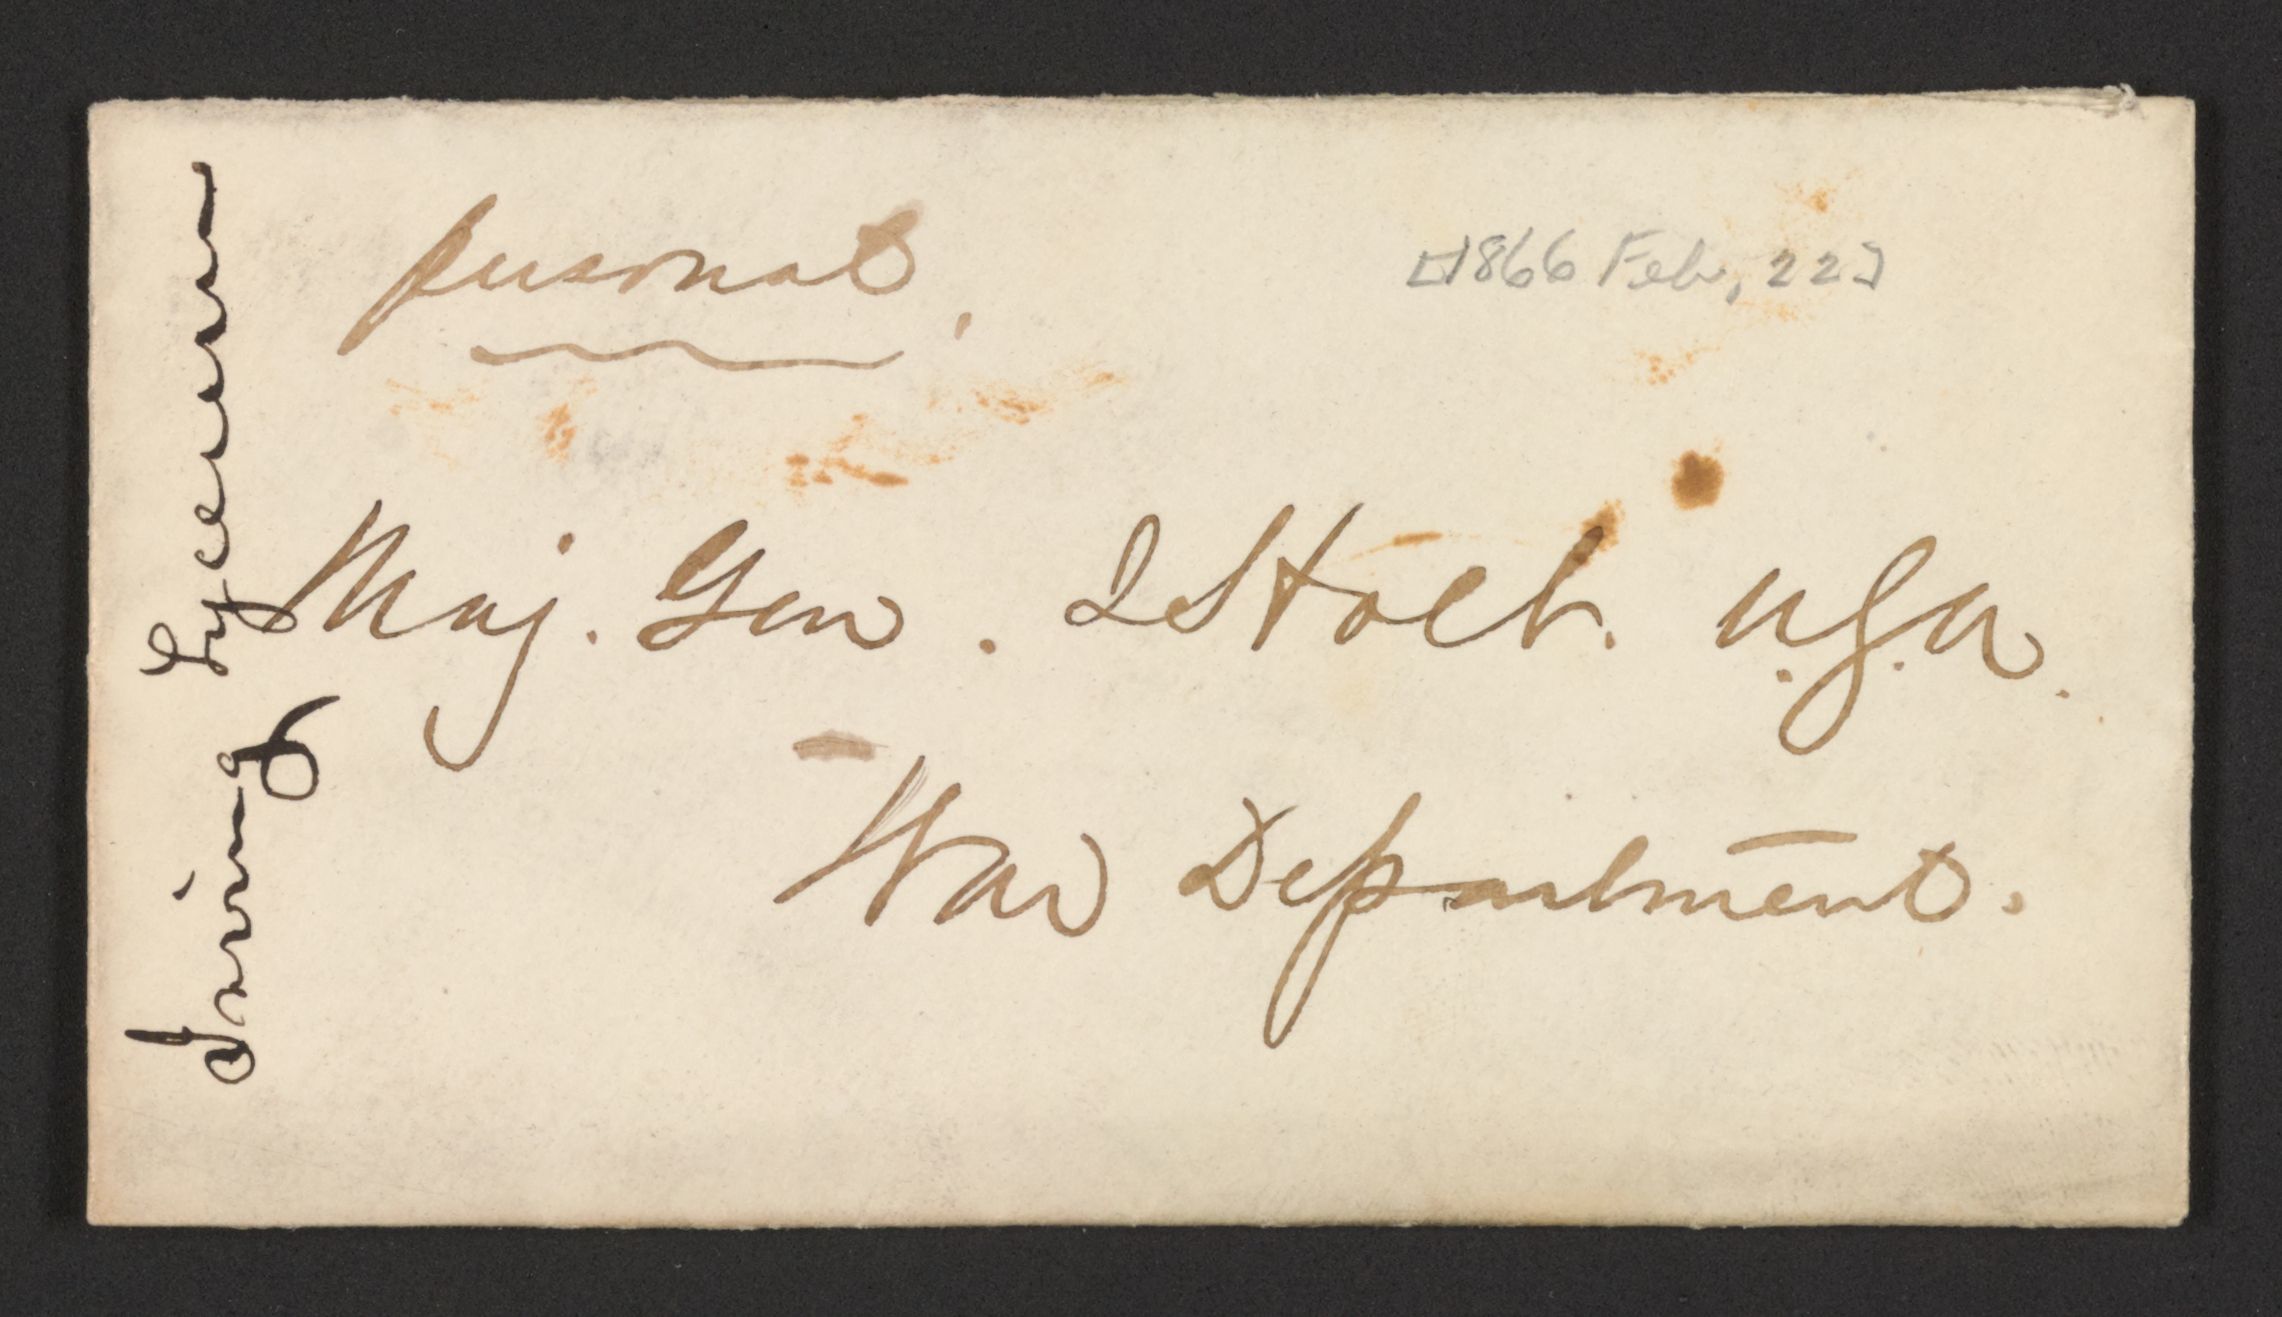 Irving Lyceum
personal.
[1866 Feb, 22]
Maj. Gen. J Holt. U.S.A.
War Department.